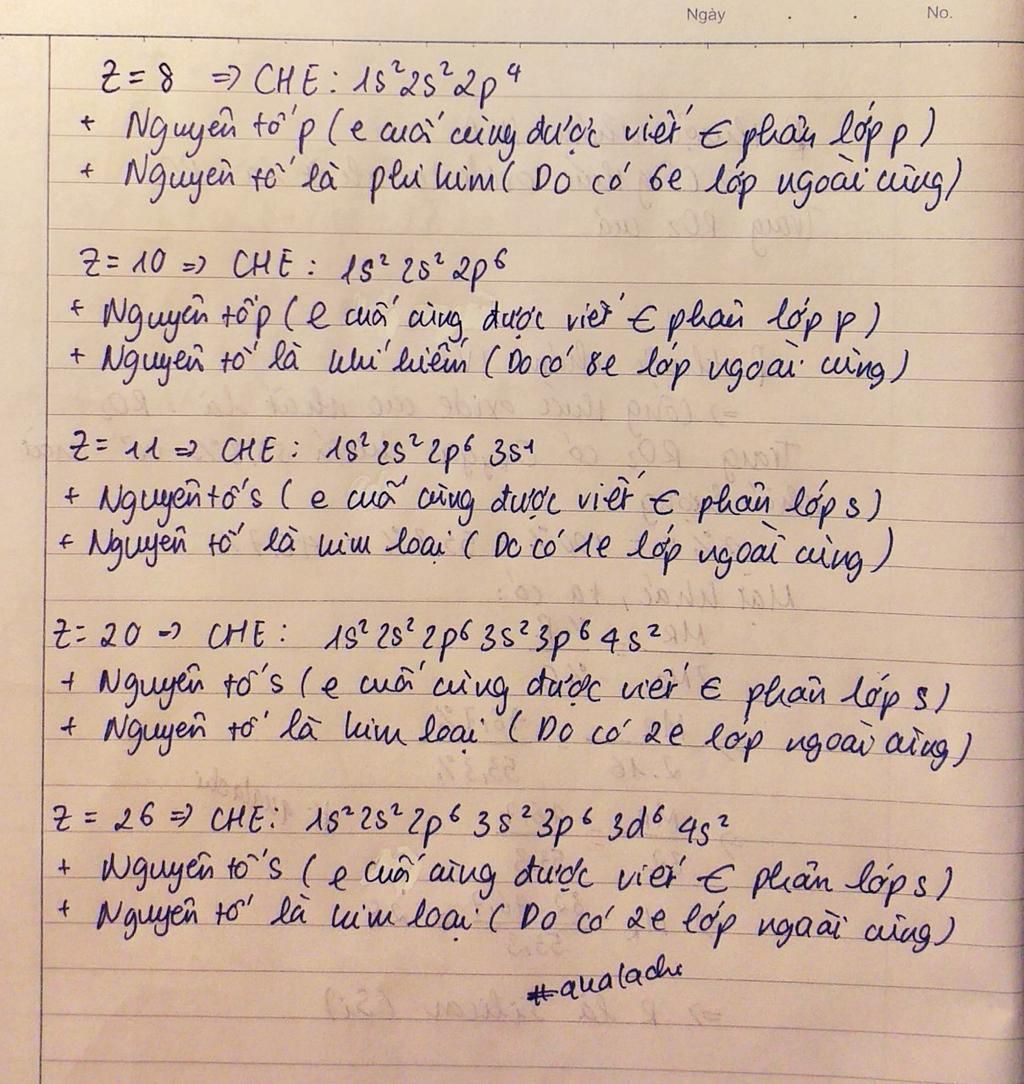 Ngày . . No.
Z = 8 => CHE: 1s² 2s² 2p⁴
+ Nguyên tố p (e cuối cùng được viết € phân lớp p)
+ Nguyên tố là phi kim (Do có 6e lớp ngoài cùng)
Z = 10 => CHE: 1s² 2s² 2p⁶
+ Nguyên tố p (e cuối cùng được viết € phân lớp p)
+ Nguyên tố là khí hiếm (Do có 8e lớp ngoài cùng)
Z = 11 => CHE: 1s² 2s² 2p⁶ 3s¹
+ Nguyên tố s (e cuối cùng được viết € phân lớp s)
+ Nguyên tố là kim loại (Do có 1e lớp ngoài cùng)
Z = 20 => CHE: 1s² 2s² 2p⁶ 3s² 3p⁶ 4s²
+ Nguyên tố s (e cuối cùng được viết € phân lớp s)
+ Nguyên tố là kim loại (Do có 2e lớp ngoài cùng)
Z = 26 => CHE: 1s² 2s² 2p⁶ 3s² 3p⁶ 3d⁶ 4s²
+ Nguyên tố s (e cuối cùng được viết € phân lớp s)
+ Nguyên tố là kim loại (Do có 2e lớp ngoài cùng)
#aualachi